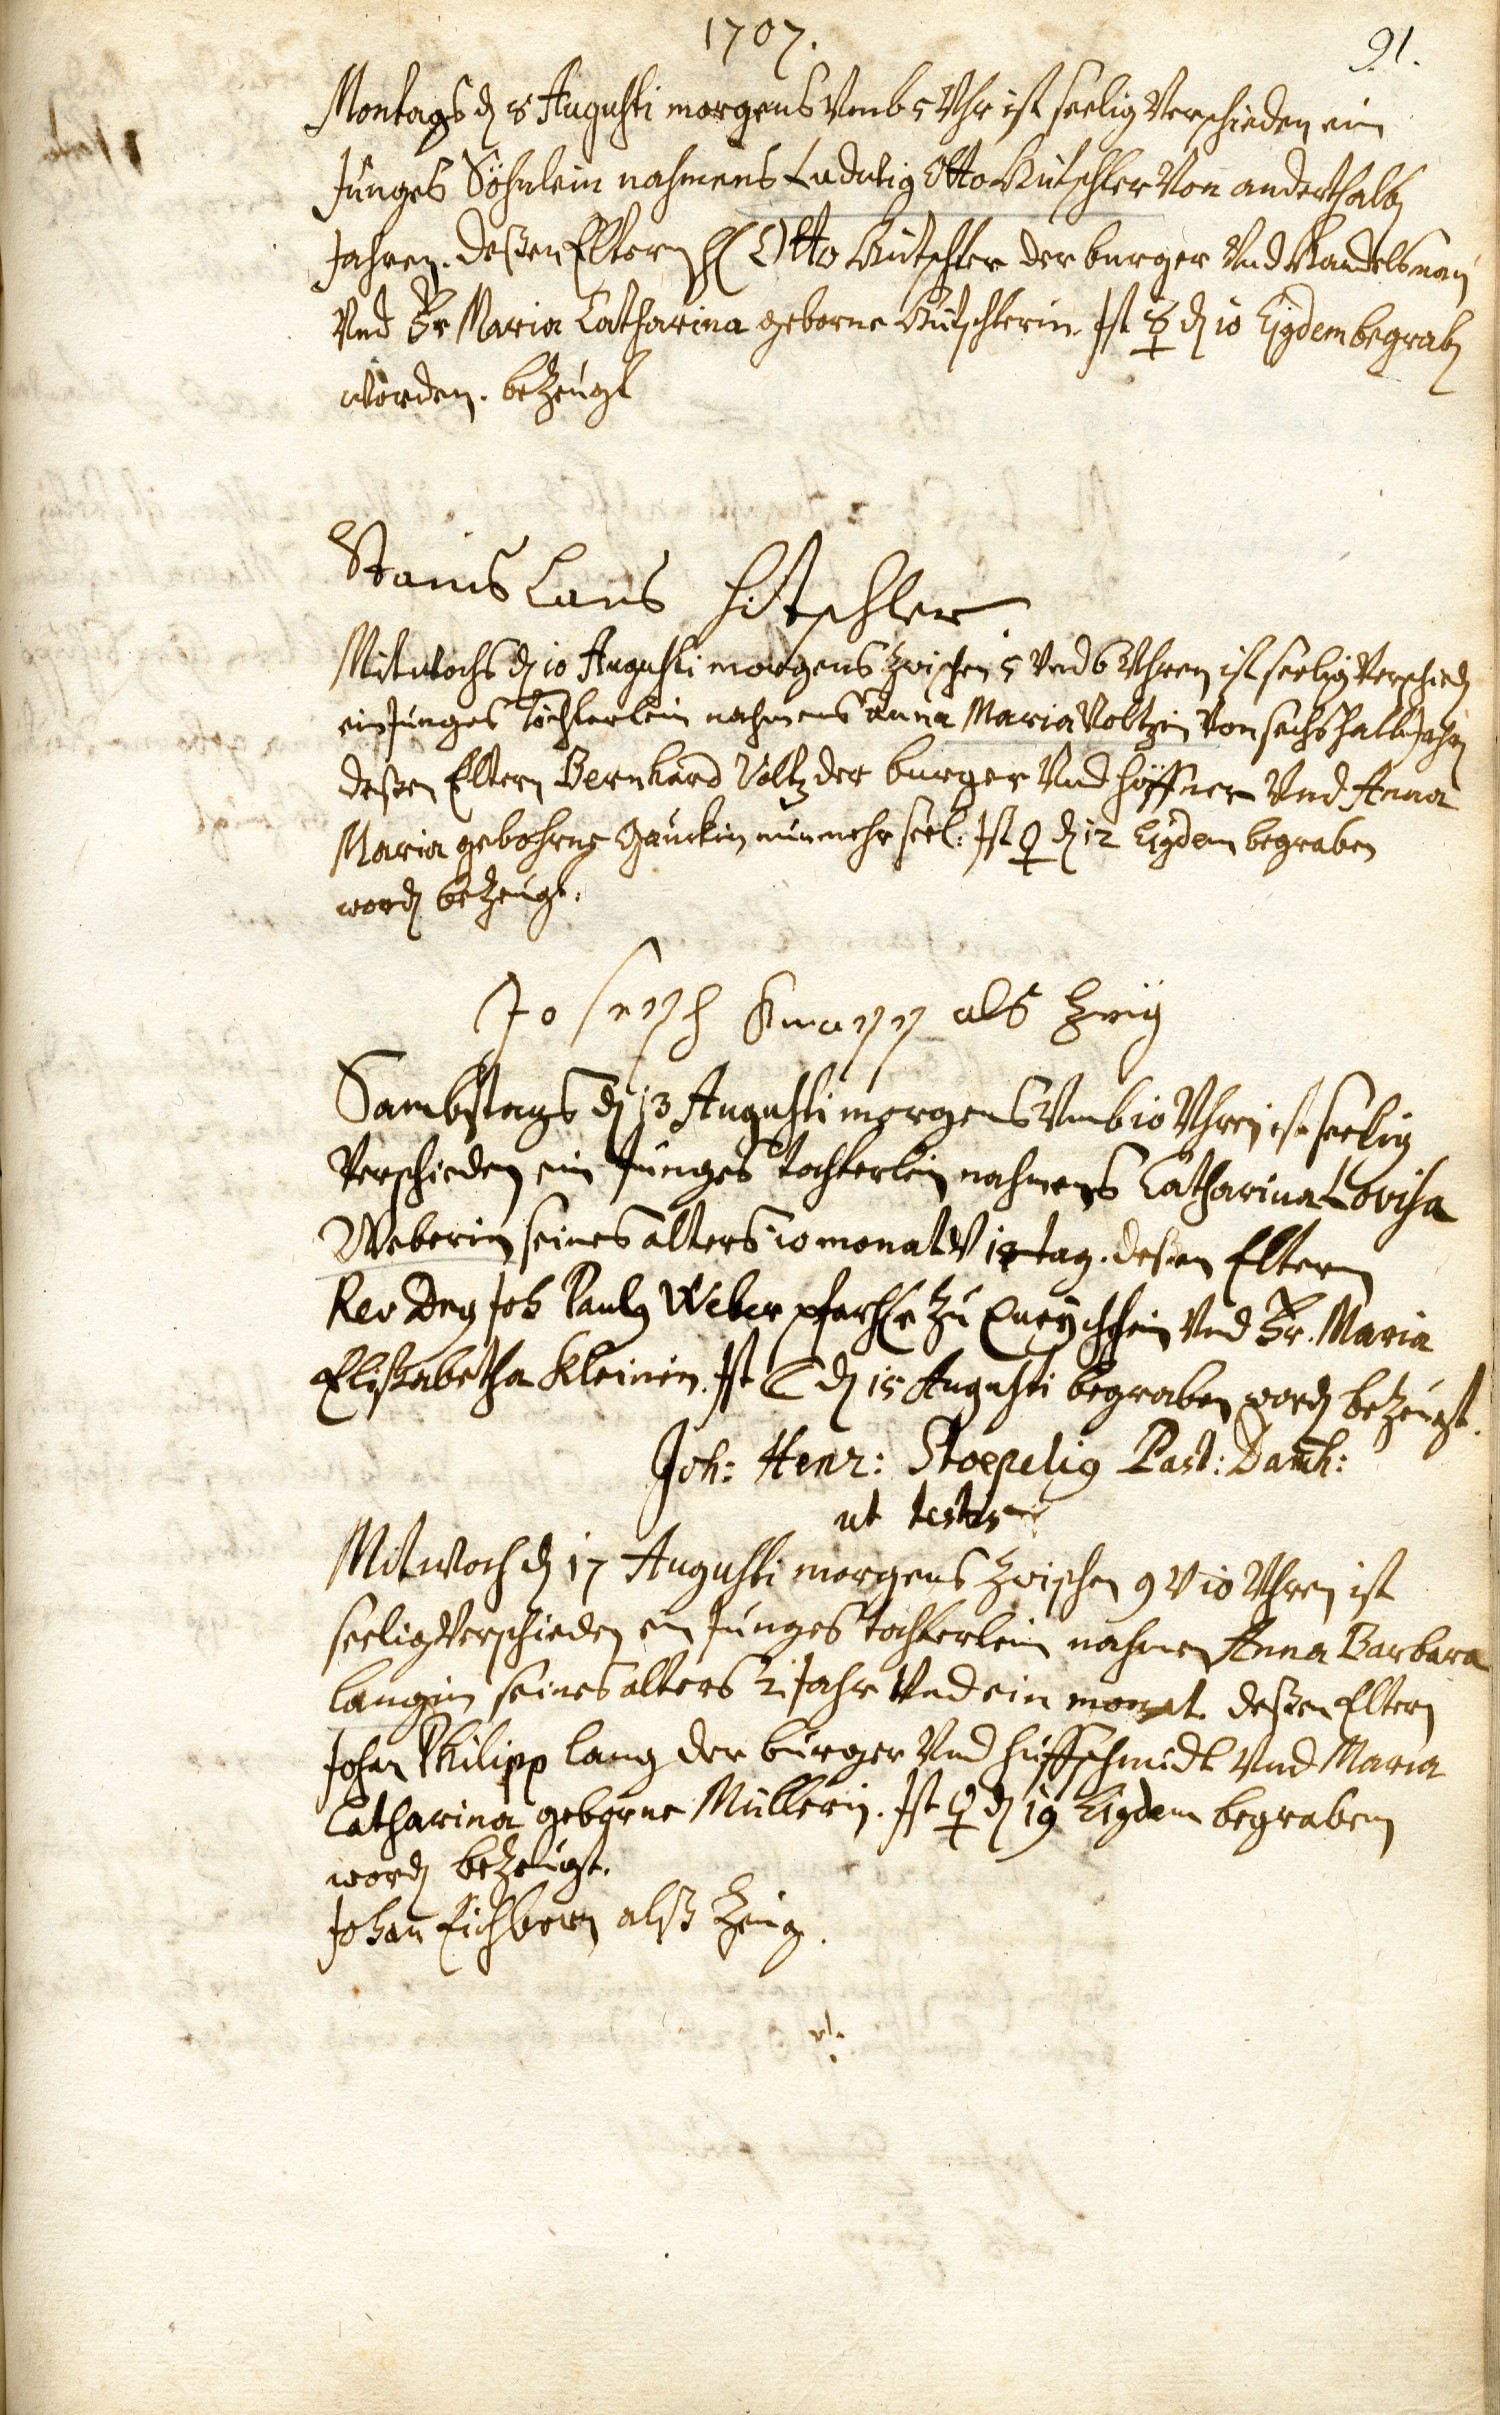 1707.
91.
Montags d 8 Augusti morgens Vmb 5 Vhr ist seelig Verschieden ein
Junges Söhnlein nahmens Ludwig Otto Hütschler Von anderthalb
Jahren. deßen Eltern H Otto Hütschler der burger Vnd Handelsman
Vnd Fr Maria Catharina geborne Hütschlerin. Ist ☿ d 10 Ejusdem begrab
worden. bezeugt
Stanis Laus hitschler
Mitwochs d 10 Augusti morgens zwischen 5 Vnd 6 Vhren ist seelig Verschied
ein Junges Töchterlein nahmens Anna Maria Voltzin Von sechshalb Jahr
deßen Eltern Bernhard Voltz der burger Vnd Vnd Anna
Maria gebohrne nunmehr seel: Ist ♀ d 12 Ejusdem begraben
word bezeugt.
Joseph Knapp als Zeig
Sambstags d 13 Augusti morgens Vmb 10 Vhren ist seelig
Verschieden ein Junges tochterlein nahmens Catharina Lovisa
Weberin seines alters 10 monat V tag. deßen Eltern
Rev Joh Paul Weber zu Vnd Fr. Maria
Elisabetha Kleinin. Ist ☾ d 15 Augusti begraben word bezeugt.
Joh: Henr: Stoepelig Past: Damh:
ut testis
Mitwoch d 17 Augusti morgens zwischen 9 V 10 Vhren ist
seelig Verschieden ein Junges tochterlein nahmen Anna Barbara
langin seines alters 2 Jahr Vnd ein monat. deßen Eltern
Johan Philipp lang der burger Vnd huffschmidt Vnd Maria
Catharina geborne Müllerin. Ist ♀ d 19 Ejusdem begraben
word bezeugt.
Johan Eichborn alß Zeig.